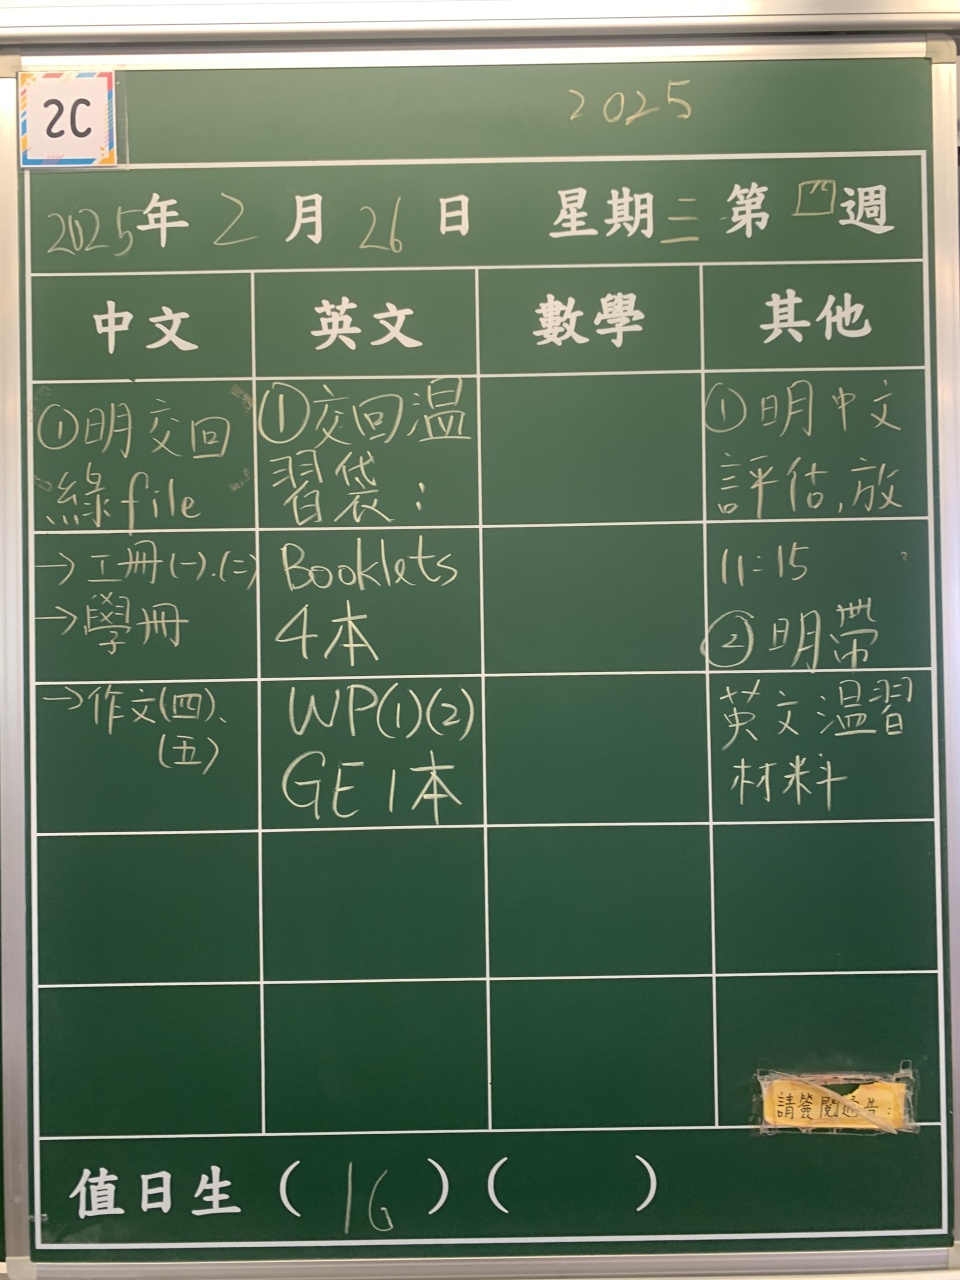 2C
2025
2025年2月26日 星期三 第四週
中文 英文 數學 其他
①明交回
綠file
→工冊(一).(二)
→學冊
→作文(四)、
(五)
①交回溫
習袋:
Booklets
4本
WP(1)(2)
GE 1本
①明中文
評估,放
11:15
②明帶
英文溫習
材料
請簽閱通告:
值日生(16)( )